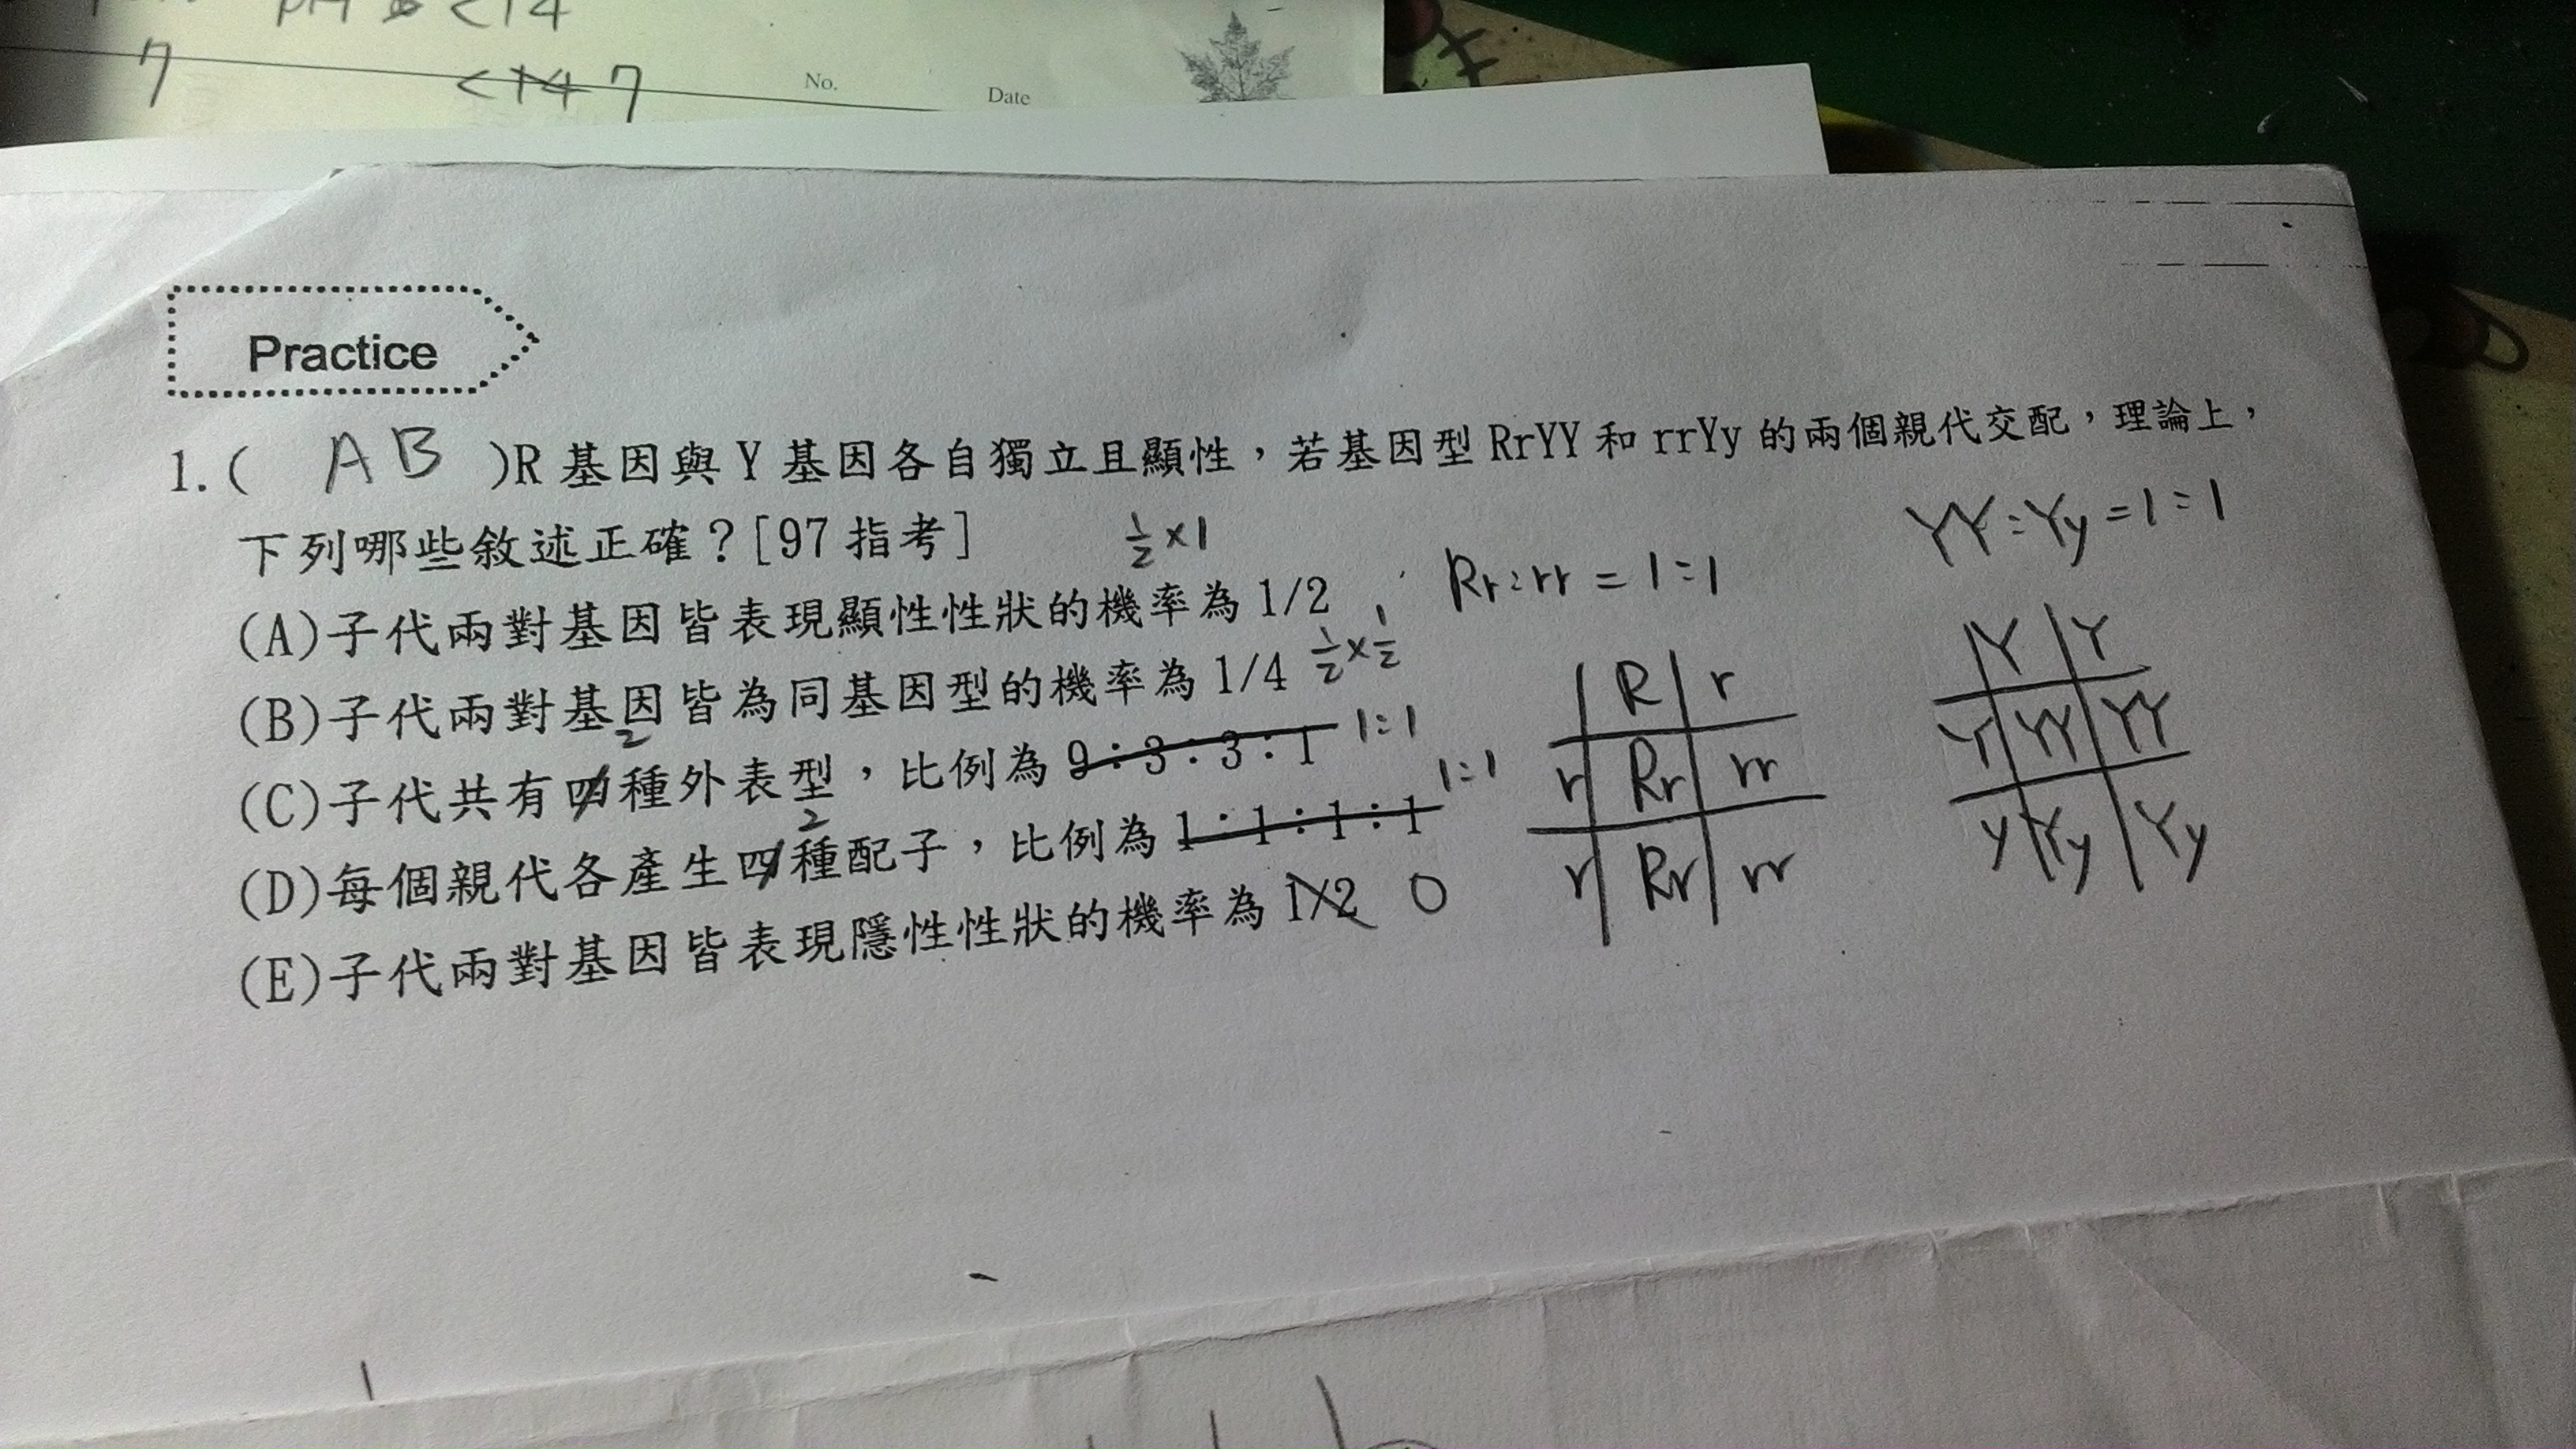 <14
7 <14 7
No. Date
Practice
1. ( AB )R 基因與 Y 基因各自獨立且顯性，若基因型 RrYY 和 rrYy 的兩個親代交配，理論上，
下列哪些敘述正確？[97 指考] 1/2 × 1 YY : Yy = 1 : 1
(A)子代兩對基因皆表現顯性性狀的機率為 1/2 Rr : rr = 1 : 1
(B)子代兩對基因皆為同基因型的機率為 1/4 1/2 × 1/2
(C)子代共有四種外表型，比例為 9：3：3：1 2 1:1
(D)每個親代各產生四種配子，比例為 1：1：1：1 2 1:1
(E)子代兩對基因皆表現隱性性狀的機率為 1/2 0
R r
r Rr rr
r Rr rr
Y Y
Y YY YY
y Yy Yy